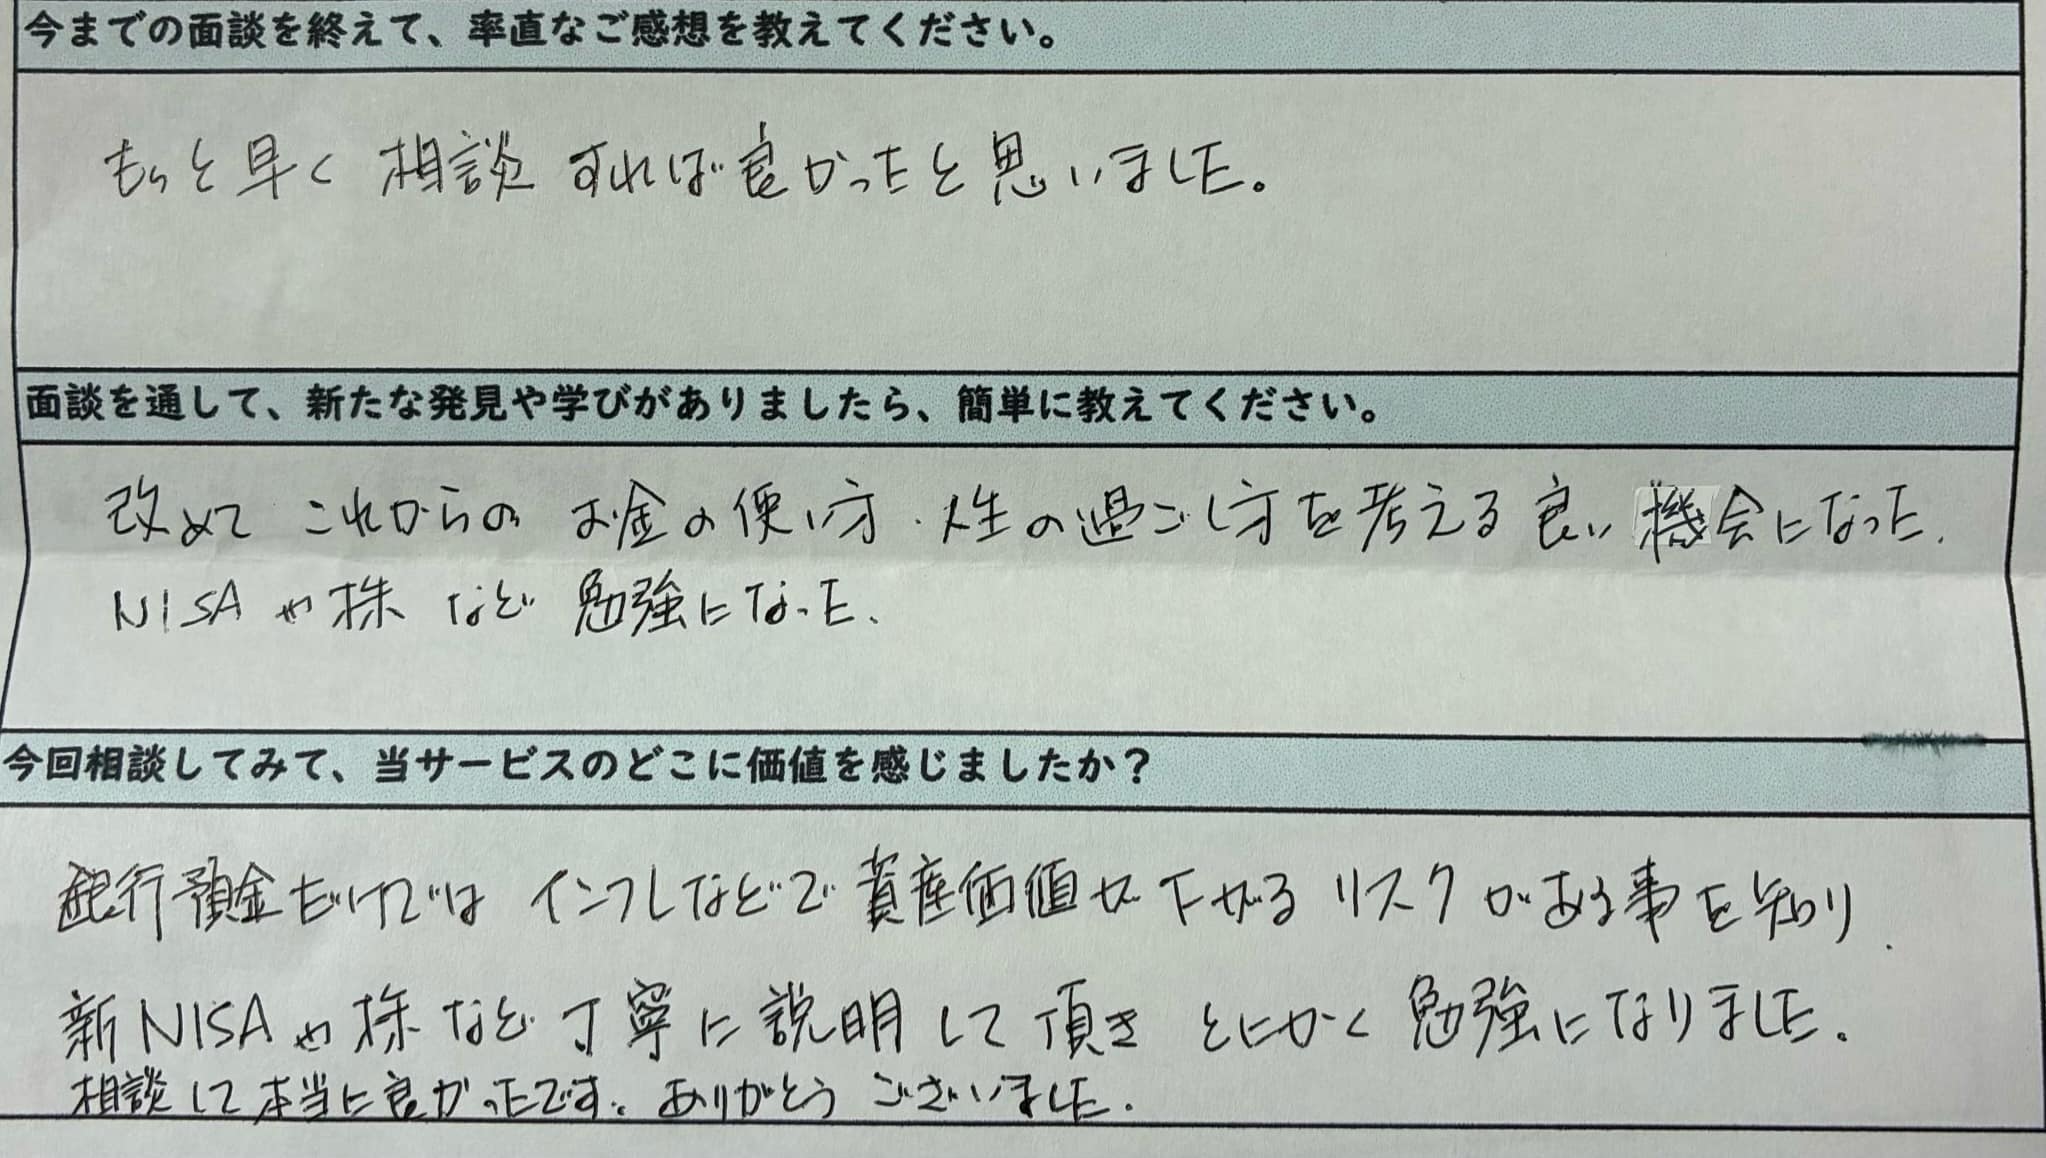 今までの面談を終えて、率直なご感想を教えてください。
もっと早く相談すれば良かったと思いました。
面談を通して、新たな発見や学びがありましたら、簡単に教えてください。
改めてこれからのお金の使い方・人生の過ごし方を考える良い機会になった.
NISAや株など勉強になった.
今回相談してみて、当サービスのどこに価値を感じましたか？
銀行預金だけではインフレなどで資産価値が下がるリスクがある事を知り.
新NISAや株など丁寧に説明して頂きとにかく勉強になりました.
相談して本当に良かったです.ありがとうございました.